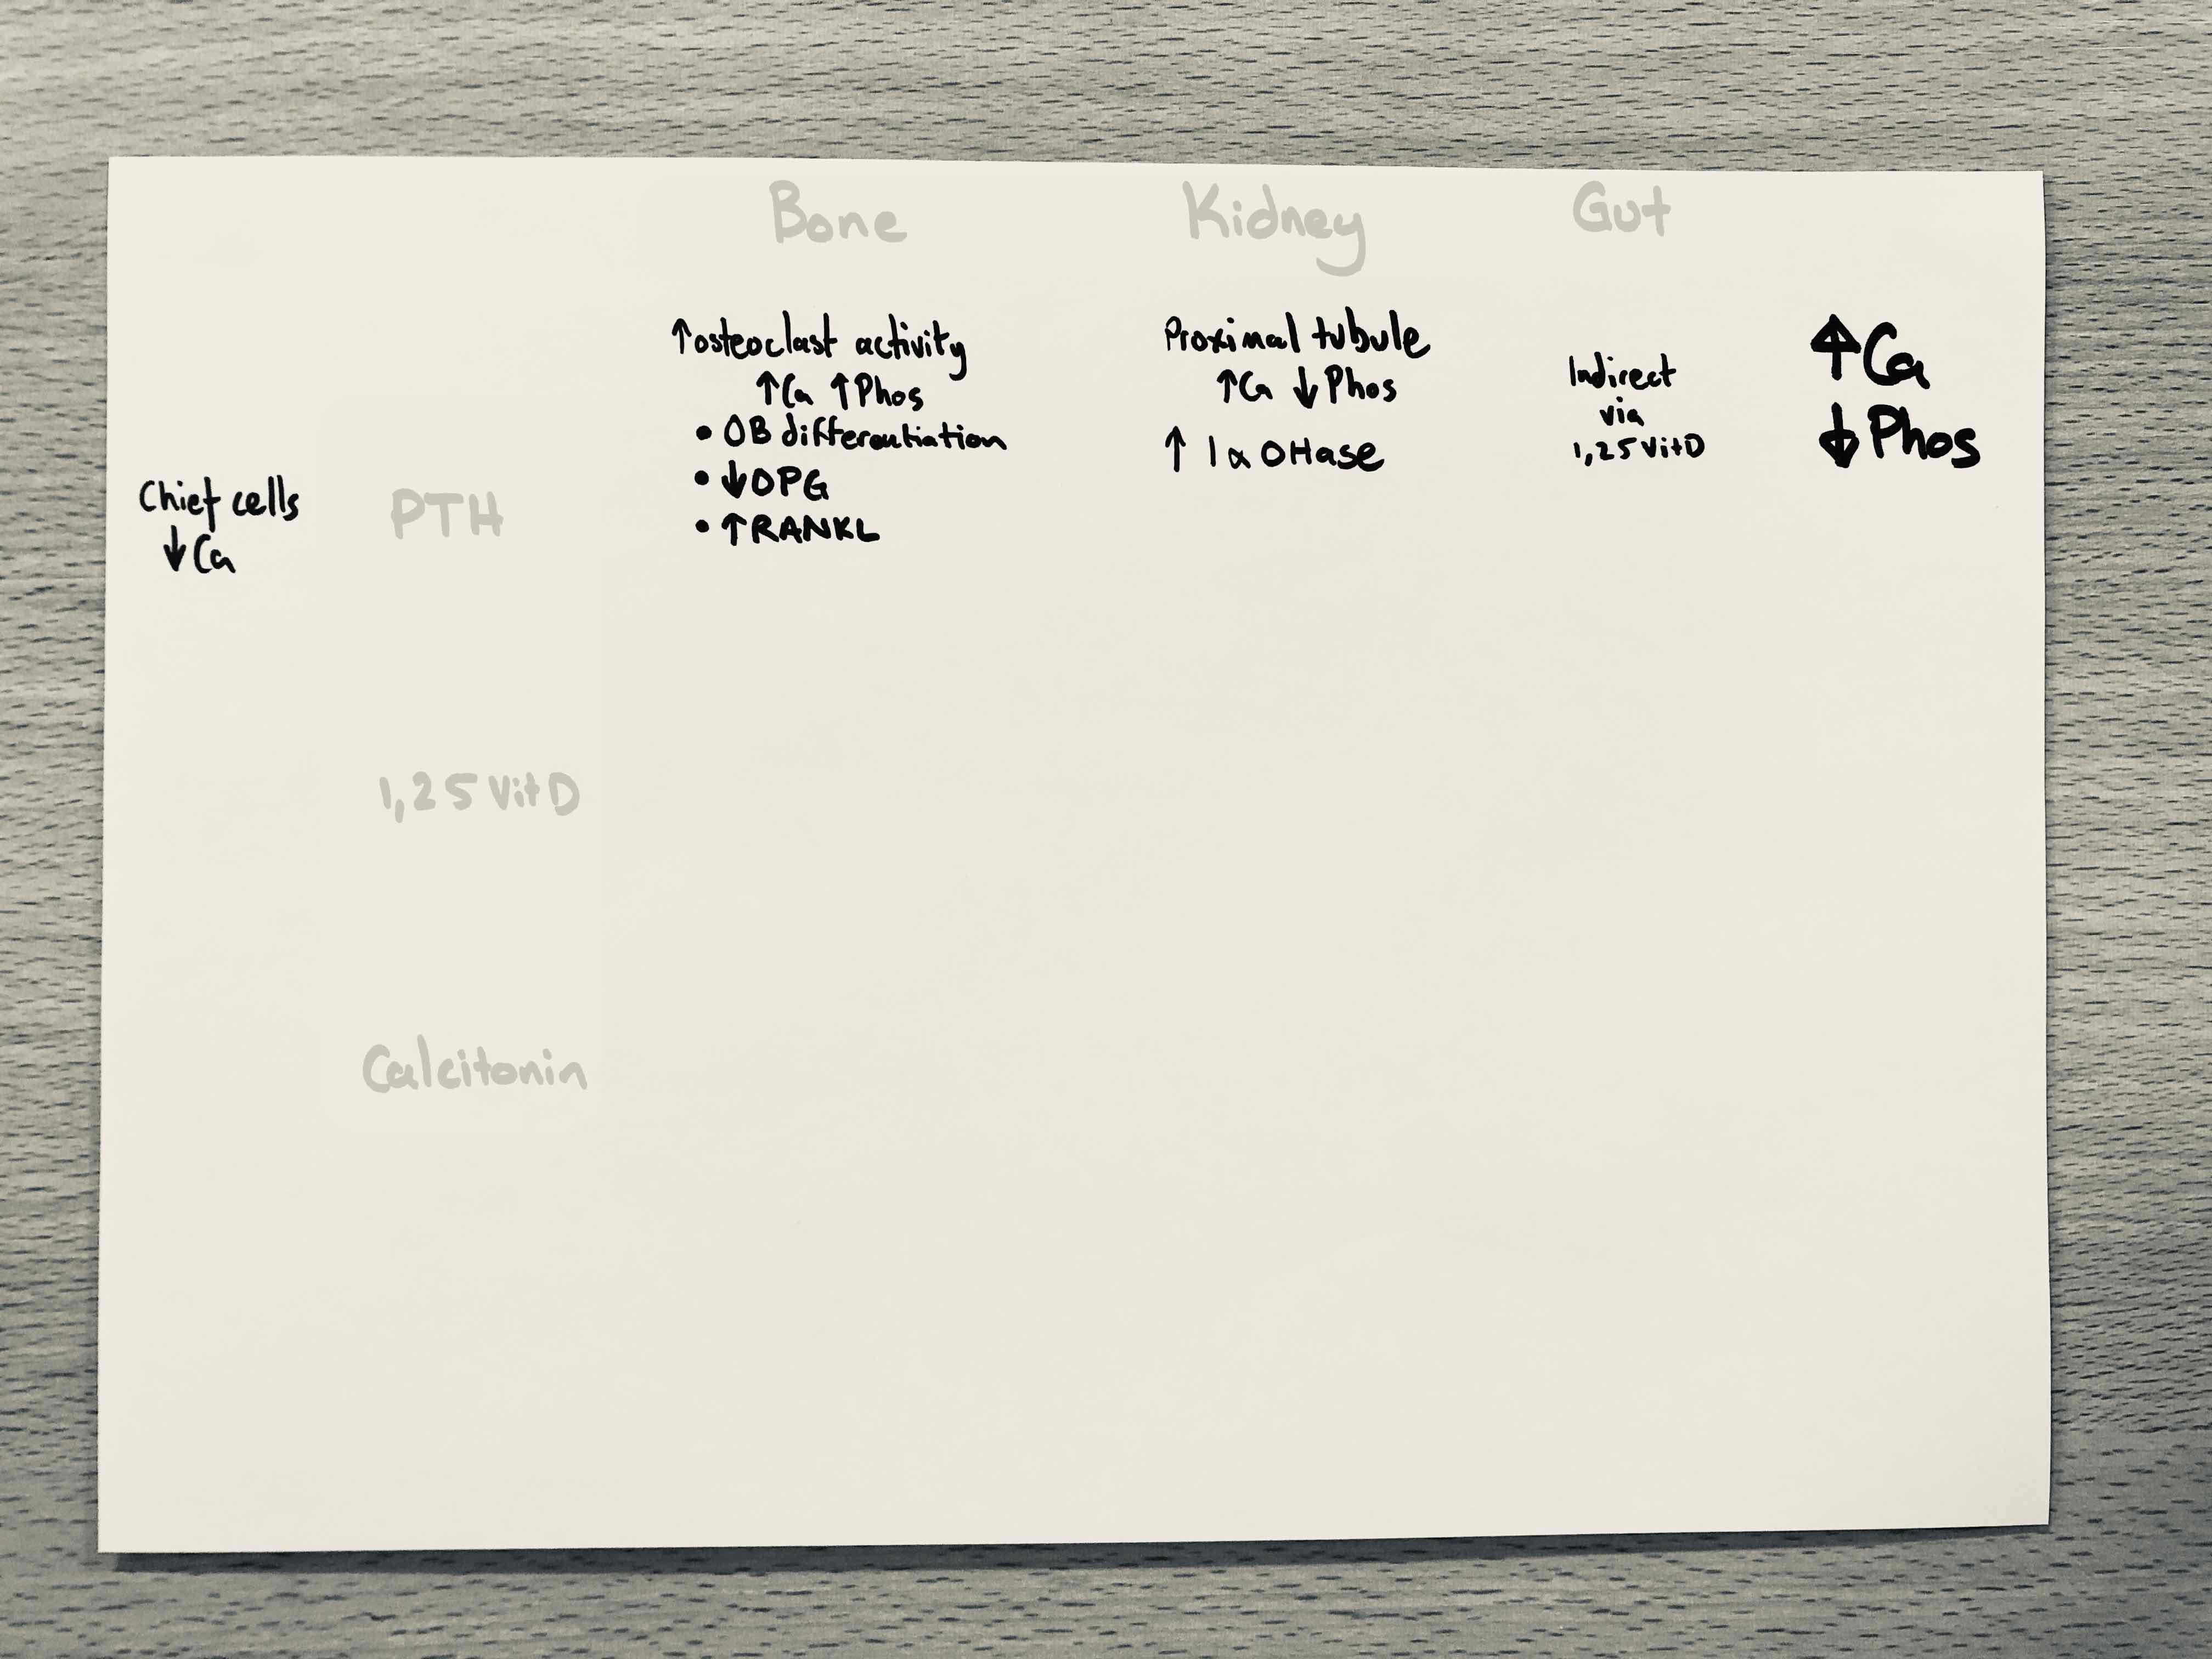 Bone Kidney Gut
↑osteoclast activity
↑Ca ↑Phos
• OB differentiation
• ↓OPG
• ↑RANKL
Proximal tubule
↑Ca ↓Phos
↑ 1α OHase
Indirect
via
1,25 Vit D
↑Ca
↓Phos
Chief cells
↓Ca
PTH
1,25 Vit D
Calcitonin